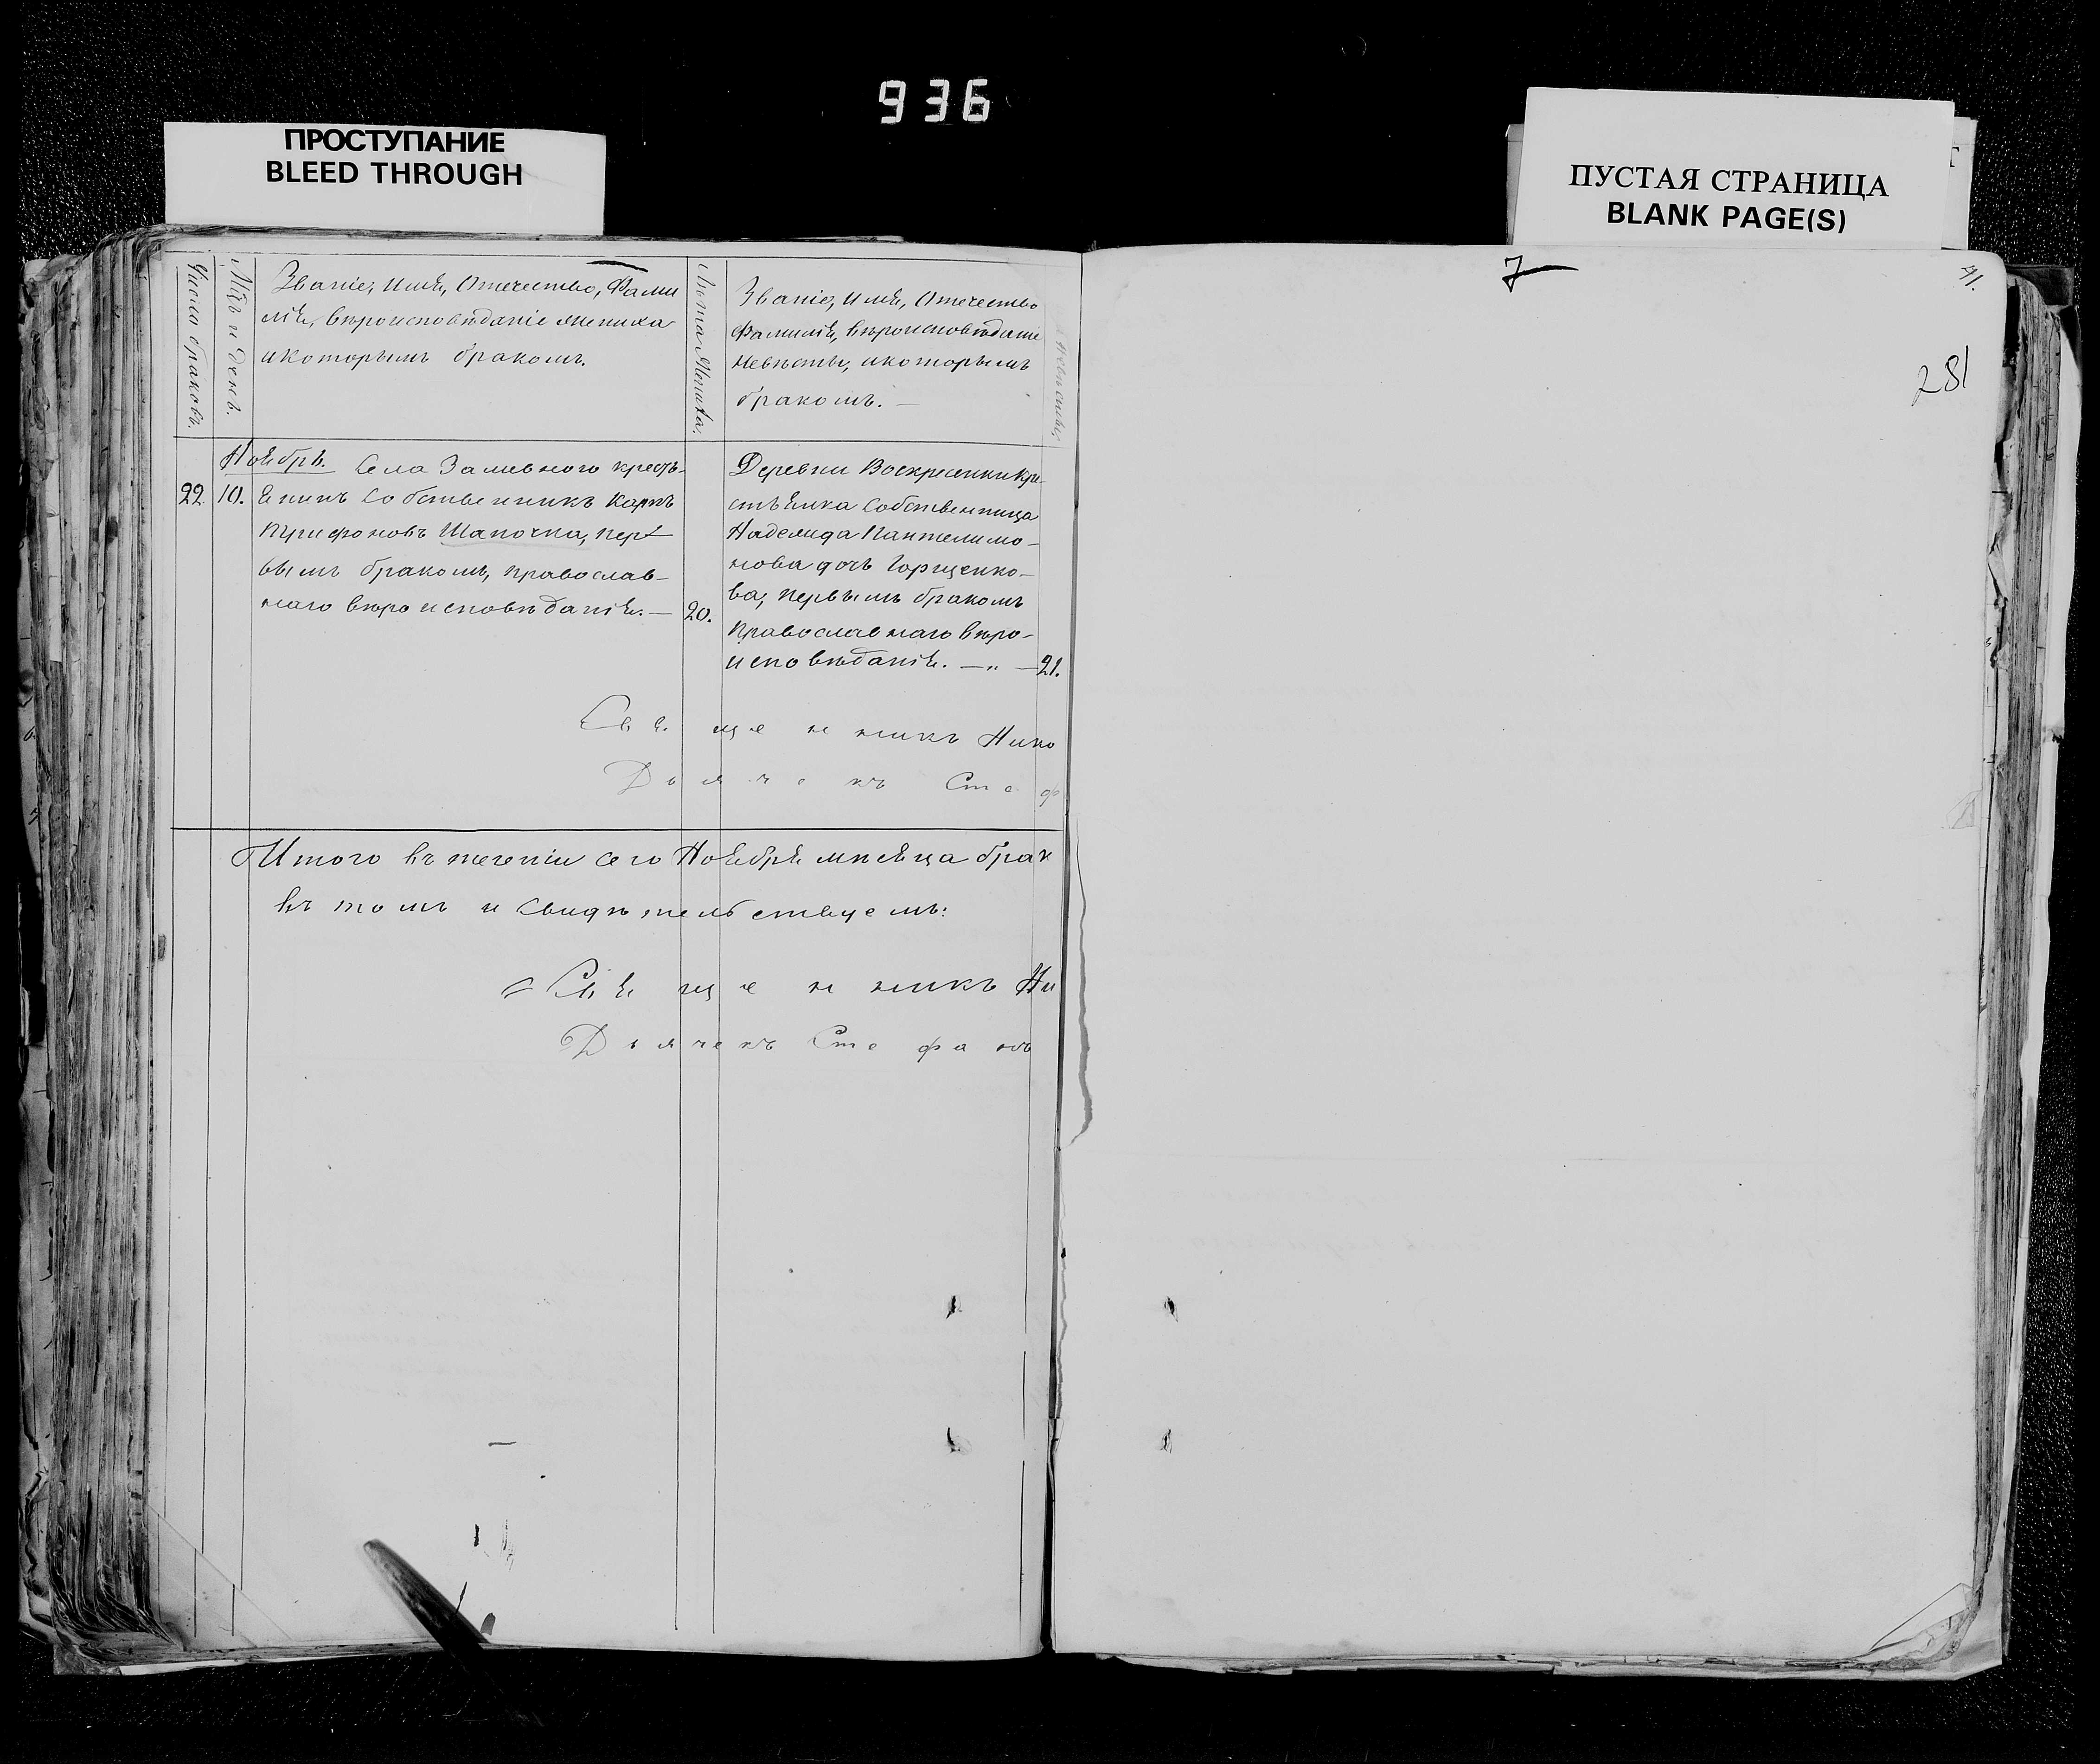 936
ПРОСТУПАНИЕ
BLEED THROUGH
ПУСТАЯ СТРАНИЦА
BLANK PAGE(S)
Число браковъ.
Мѣс. и день.
Званіе, имя, Отечество, Фами
лія, вѣроисповѣданіе жениха
и которымъ бракомъ.
Лѣта Жениха.
Званіе, имя, Отечество
Фамилія, вѣроисповѣданіе
невѣсты, и которымъ
бракомъ. —
Невѣсты,
Ноябрь.
22. 10.
Села Заливного кресть-
янинъ собственникъ Карпъ
Трифоновъ Шапочка, пер-
вымъ бракомъ, православ-
наго вѣроисповѣданія. — 20.
Деревни Воскресенки кре-
стьянка собственница
Надежда Пантелимо-
нова дочь Горщенко-
ва, первымъ бракомъ
Православнаго вѣро-
исповѣданія. —„— 21.
Священникъ Нико
Дьячекъ Стеф
Итого въ теченіи сего Ноября мѣсяца брак
въ томъ и свидѣтельствуемъ:
Священникъ Ни
Дьячекъ Стефанъ
7
41.
281